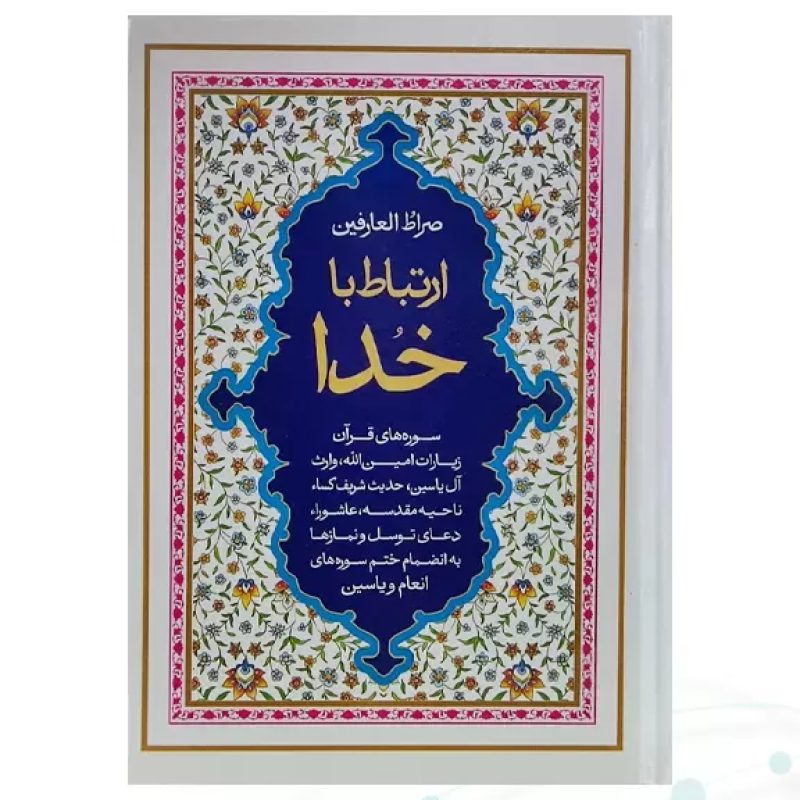 صراطُ العارفین
ارتباط با
خُدا
سوره‌های قرآن
زیارات امین‌الله، وارث
آل یاسین، حدیث شریف کساء
ناحیه مقدسه، عاشوراء
دعای توسل و نمازها
به انضمام ختم سوره‌های
انعام و یاسین